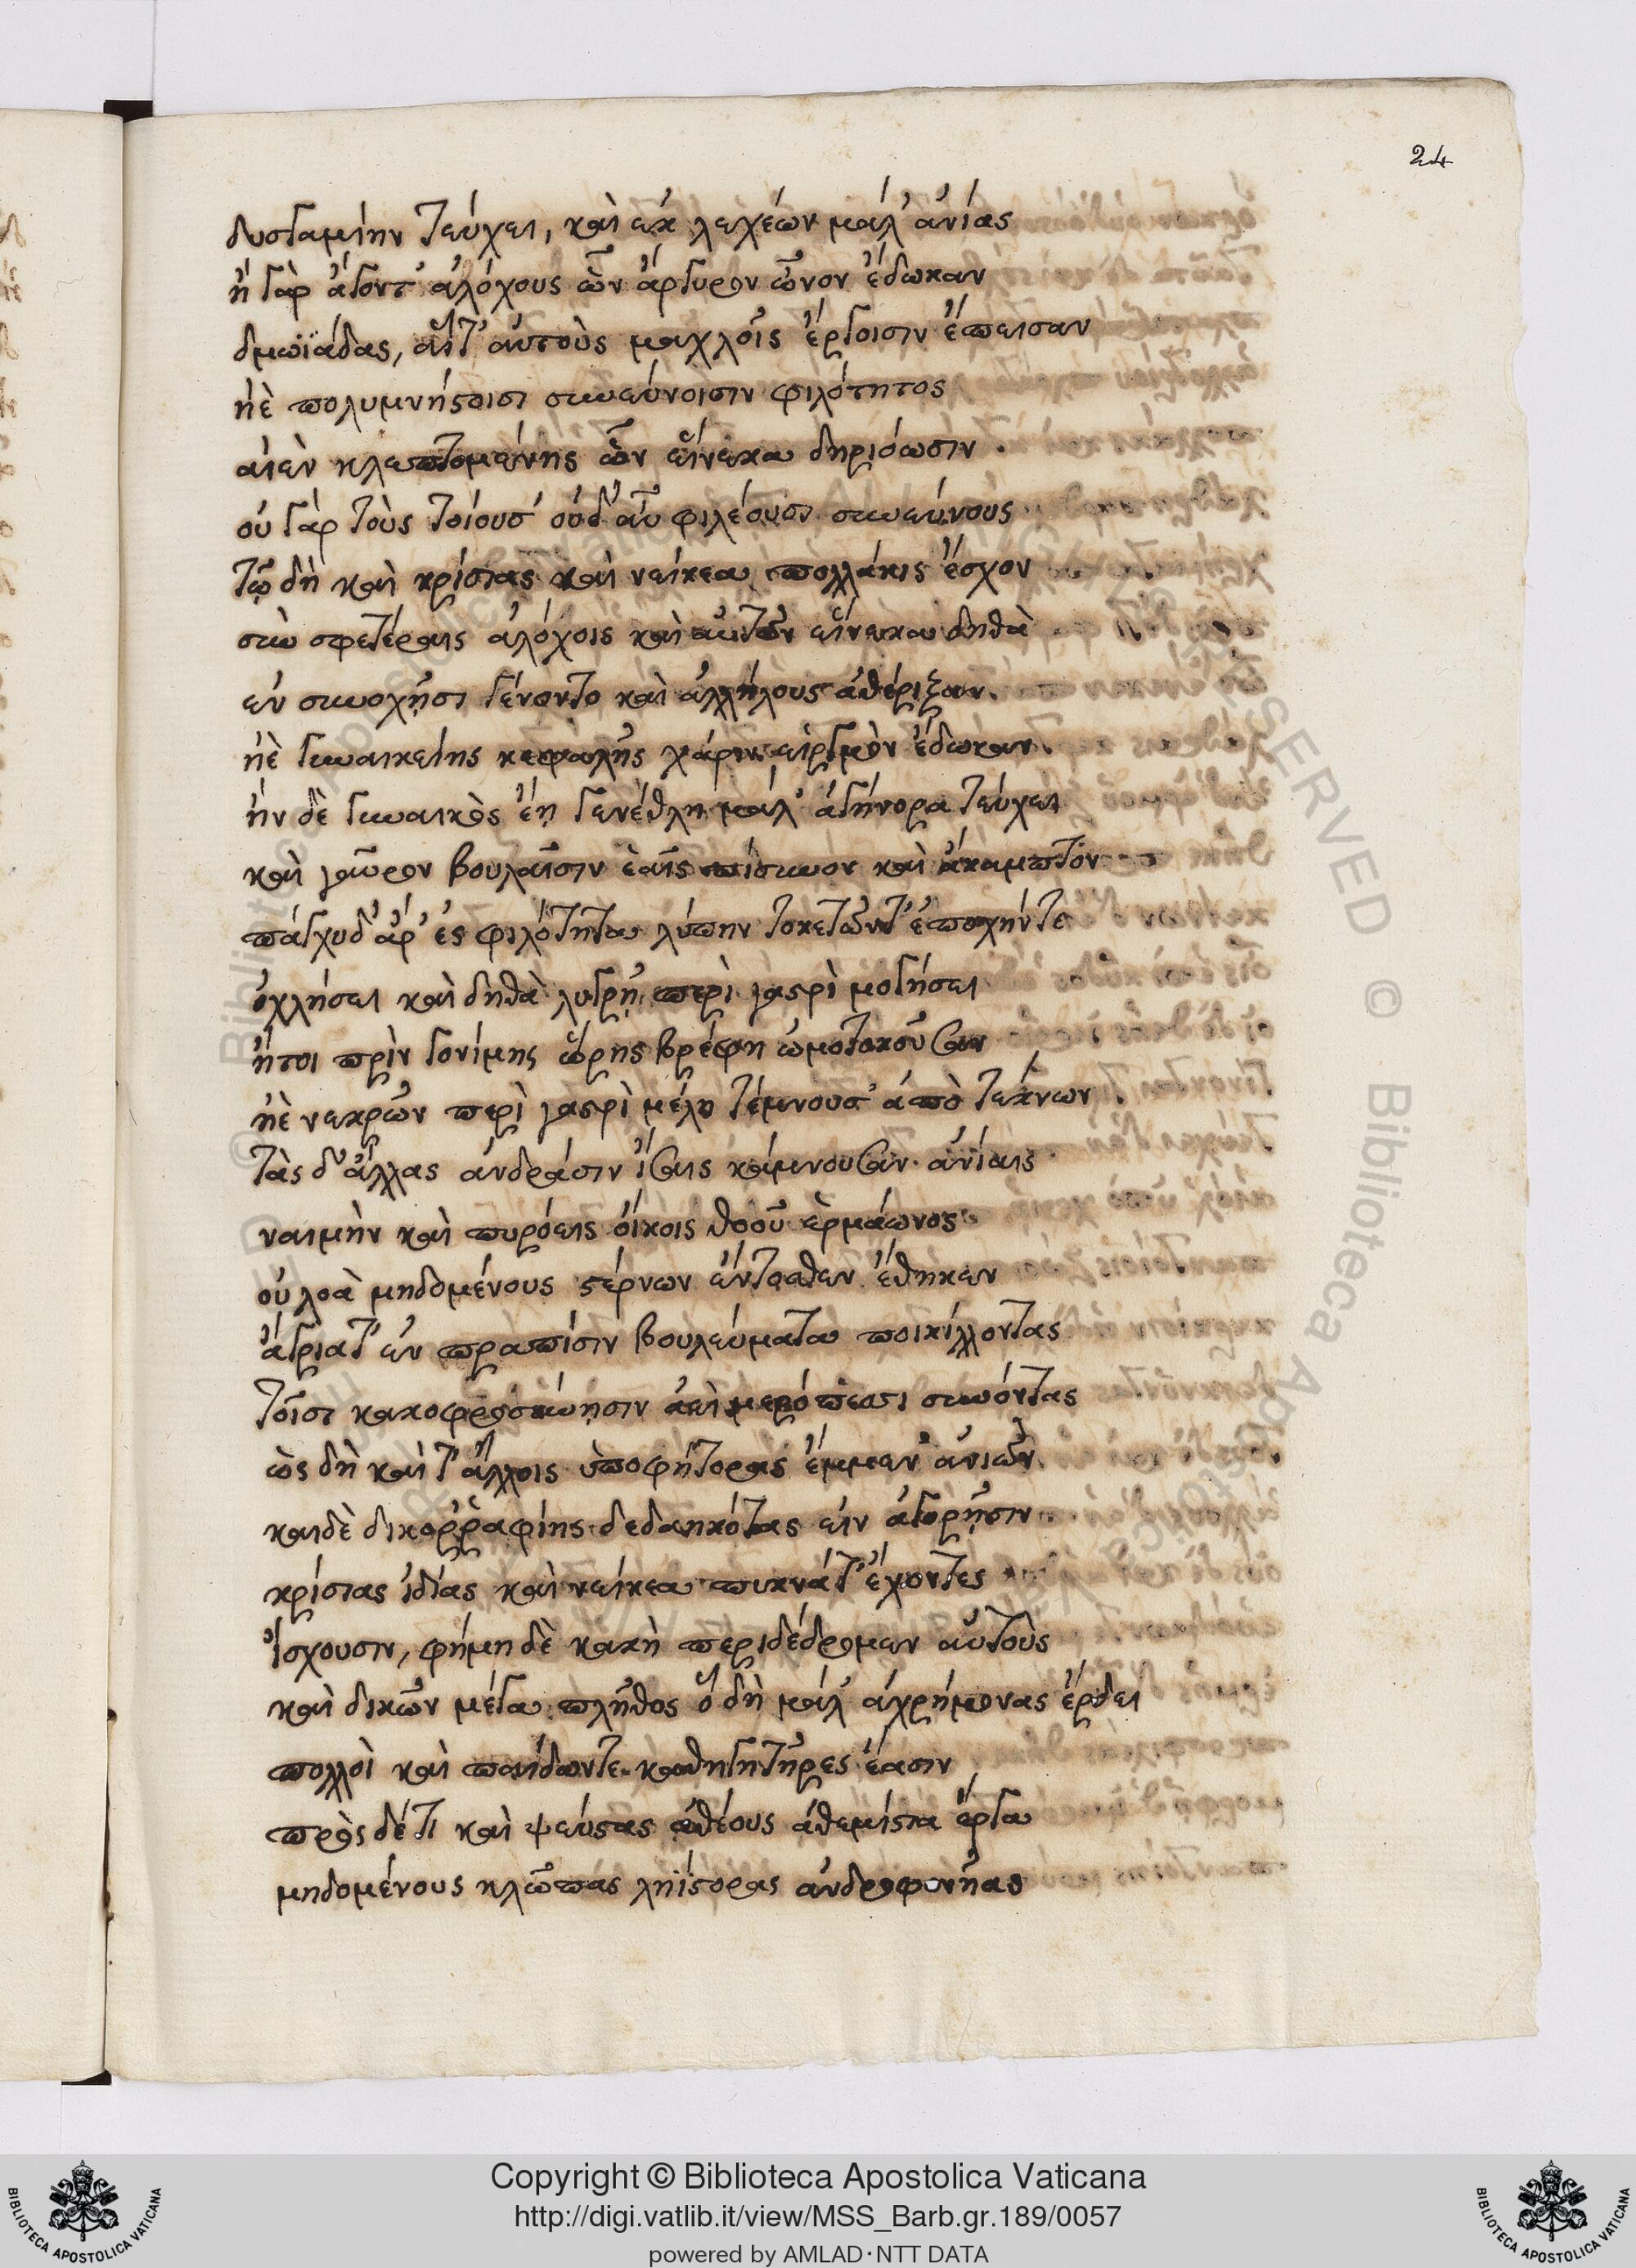 24
δυσγαμίην τεύχει, καὶ ἐκ λεχέων μάλ' ἀνίας
ἢ γὰρ ἄγοντ' ἀλόχους ὧν ἄργυρον ὦνον ἔδωκαν
δμωϊάδας, αἵτ' αὐτοὺς μαχλοῖς ἔργοισιν ἔπεισαν
ἠὲ πολυμνήστοισι συνεύνοισιν φιλότητος
αἰὲν κλεπτομένης ὧν εἵνεκα δηριόωσιν.
οὐ γὰρ τοὺς τοίουσ' οὐδ' αὖ φιλέουσι συνεύνους
τῷ δὴ καὶ κρίσιας καὶ νείκεα πολλάκις ἔσχον
σὺν σφετέραις ἀλόχοις καὶ αὐτῶν εἵνεκα δηθὰ
ἐν συνοχῇσι γένοντο καὶ ἀλλήλους ἀθέριξαν.
ἠὲ γυναικείης κεφαλῆς χάριν εἱργμὸν ἔδωκαν.
ἢν δὲ γυναικὸς ἔῃ γενέθλη μάλ' ἀγήνορα τεύχει
καὶ γαῦρον βουλαῖσιν ἑαῖς πίσυνον καὶ ἄκαμπτον
πάγχυ δ' ἄρ' ἐς φιλότητα λύπην τοκετῶν τ' ἐποχήν τε
ὀχλήσει καὶ δηθὰ λυγρῇ περὶ γαστρὶ μογήσει
ἤτοι πρὶν γονίμης ὥρης βρέφη ὠμοτοκοῦσαν
ἠὲ νεκρῶν περὶ γαστρὶ μέλη τέμνουσ' ἀπὸ τέκνων.
τὰς δ' ἄλλας ἀνδράσιν ἴσαις κάμνουσαν ἀνίαις
ναιμὴν καὶ πυρόεις οἴκοις θοοῦ ἑρμάωνος
οὐλοὰ μηδομένους στέρνων ἔντοσθεν ἔθηκεν
ἄγρια τ' ἐν πραπίσιν βουλεύματα ποικίλλοντας
τοῖσι κακοφροσύνῃσιν ἀεὶ μερόπεσσι συνόντας
ὡς δὴ καὶ τ' ἄλλοις ὑποφήτορας ἔμμεν' ἀνιῶν
καιδὲ δικορραφίης δεδαηκότας εἰν ἀγορῇσιν
κρίσιας ἰδίας καὶ νείκεα πυκνά τ' ἔχοντες
ἴσχουσιν, φήμη δὲ κακὴ περιδέδρομεν αὐτοὺς
καὶ δικῶν μέγα πλῆθος ὃ δὴ μάλ' ἀχρήμονας ἔρδει
πολλοὶ καὶ παίδων τε καθηγητῆρες ἔασιν
πρὸς δέ τι καὶ ψεύστας ἀθέους ἀθεμίστια ἔργα
μηδομένους κλῶπας ληΐστορας ἀνδροφονῆας
Copyright © Biblioteca Apostolica Vaticana
http://digi.vatlib.it/view/MSS_Barb.gr.189/0057
powered by AMLAD·NTT DATA
BIBLIOTECA APOSTOLICA VATICANA
BIBLIOTECA APOSTOLICA VATICANA